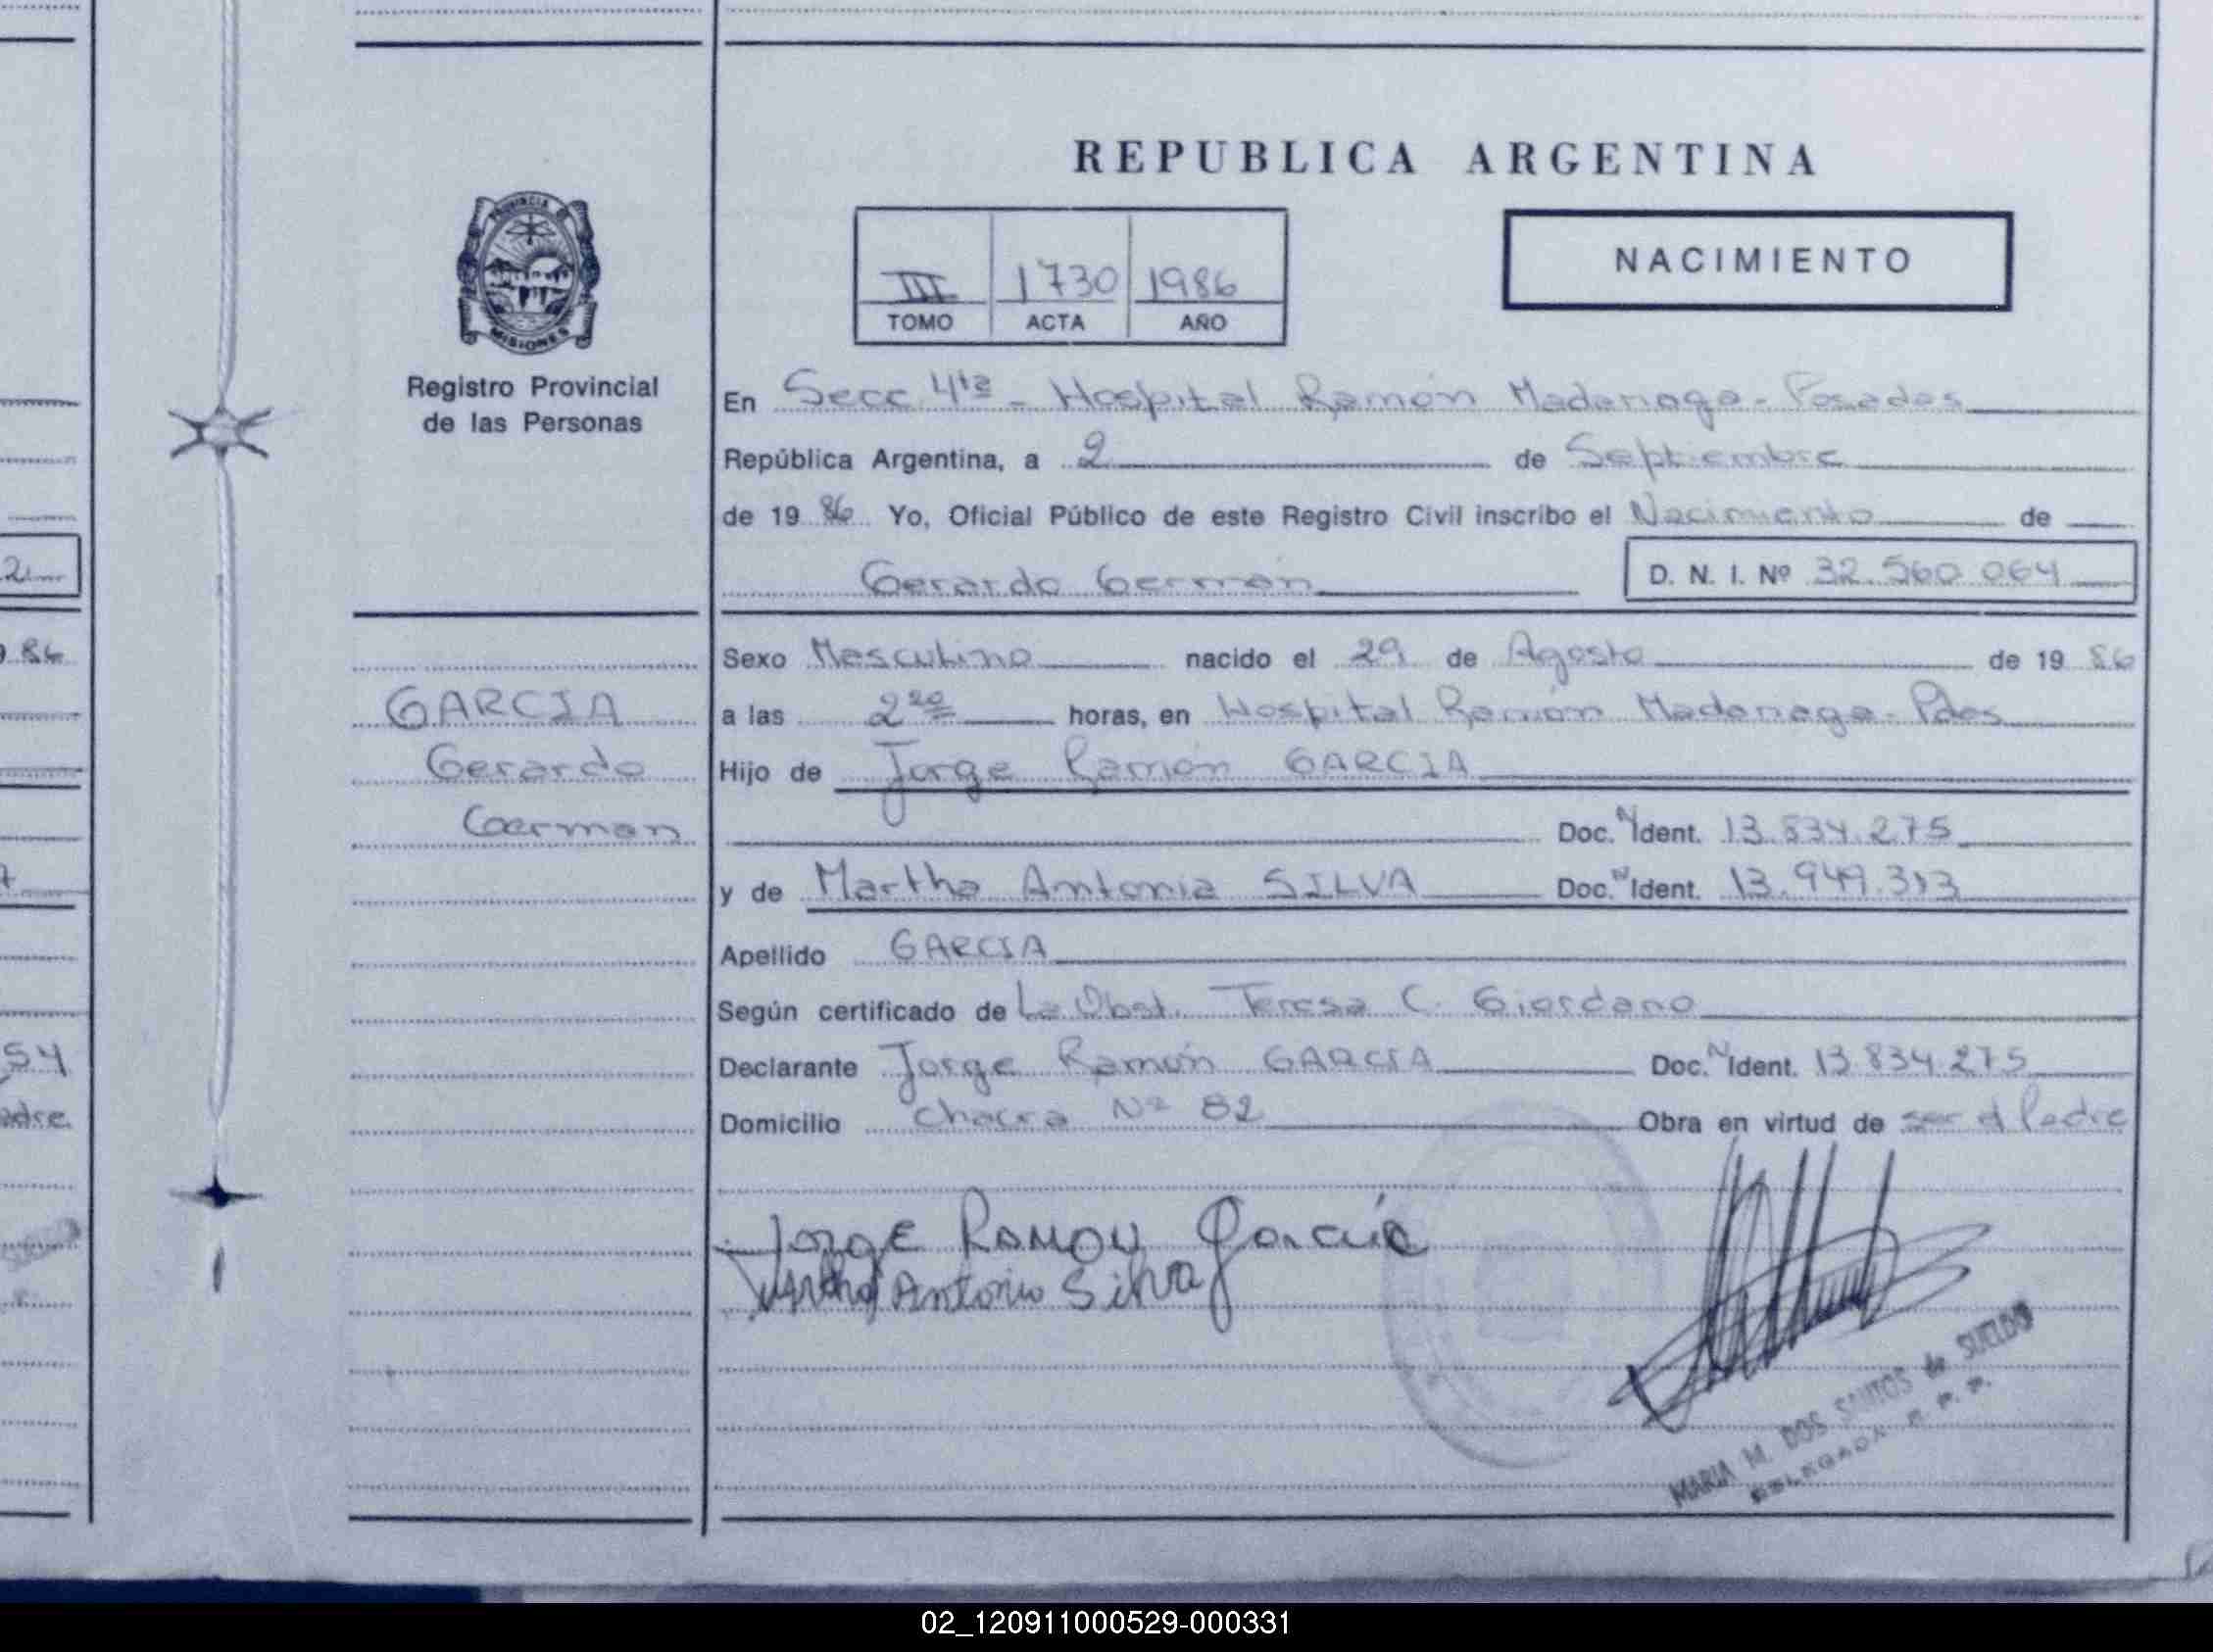 REPUBLICA ARGENTINA
PROVINCIA DE
MISIONES
Registro Provincial
de las Personas
III 1730 1986
TOMO ACTA AÑO
NACIMIENTO
En Secc. 4ta - Hospital Ramón Madariaga - Posadas
República Argentina, a 2 de Septiembre
de 19 86 Yo, Oficial Público de este Registro Civil inscribo el Nacimiento de
Gerardo German
D. N. I. Nº 32.560.064
Sexo Masculino nacido el 29 de Agosto de 19 86
GARCIA
a las 2 20 horas, en Hospital Ramón Madariaga - Pdas
Gerardo
Hijo de Jorge Ramón GARCIA
German
Doc. N Ident. 13.834.275
y de Martha Antonia SILVA Doc. N Ident. 13.949.313
Apellido GARCIA
Según certificado de La Obst. Teresa C. Giordano
Declarante Jorge Ramón GARCIA Doc. N Ident. 13.834.275
Domicilio Chacra Nº 82 Obra en virtud de ser el Padre
Jorge Ramon Garcia
Martha Antonia Silva
MARIA M. DOS SANTOS de SUELDO
DELEGADA R. P. P.
2
86
54
adre.
02_120911000529-000331